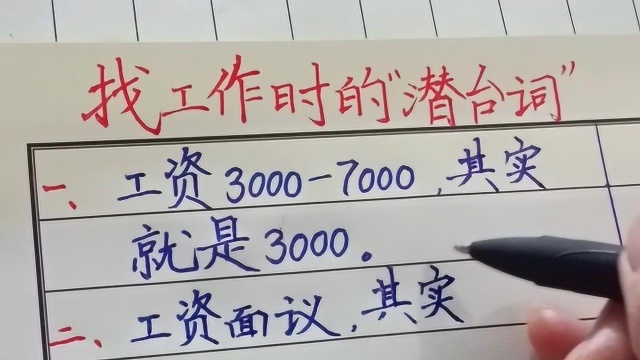 找工作时的"潜台词"
一、工资3000-7000,其实
就是3000。
二、工资面议,其实